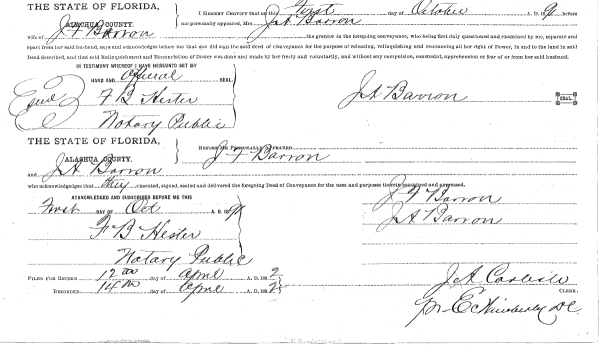 THE STATE OF FLORIDA, I HEREBY CERTIFY That on this First day of October A. D. 189 before
ALACHUA COUNTY. me personally appeared, Mrs. J A Barron
wife of J F Barron the grantor in the foregoing conveyance, who being first duly questioned and examined by me, separate and
apart from her said husband, says and acknowledges before me that she did sign the said deed of Conveyance for the purpose of releasing, relinquishing and renouncing all her right of Dower, in and to the land in said
Deed described, and that said Relinquishment and Renunciation of Dower was done and made by her freely and voluntarily, and without any compulsion, constraint, apprehension or fear of or from her said husband.
IN TESTIMONY WHEREOF I HAVE HEREUNTO SET MY
HAND AND Official SEAL
F B Hester
Notary Public
J A Barron SEAL.
THE STATE OF FLORIDA,
ALACHUA COUNTY. BEFORE ME PERSONALLY APPEARED J F Barron
and J A Barron
who acknowledges that they executed, signed, sealed and delivered the foregoing Deed of Conveyance for the uses and purposes therein mentioned and expressed.
ACKNOWLEDGED AND SUBSCRIBED BEFORE ME THIS
First DAY OF Oct A. D. 189
F B Hester
Notary Public
J F Barron
J A Barron
FILED FOR RECORD 12 day of April A.D. 189 2
RECORDED 14 day of April A.D. 189 2
J A Carlisle
CLERK.
pr E C Kimberly DC.